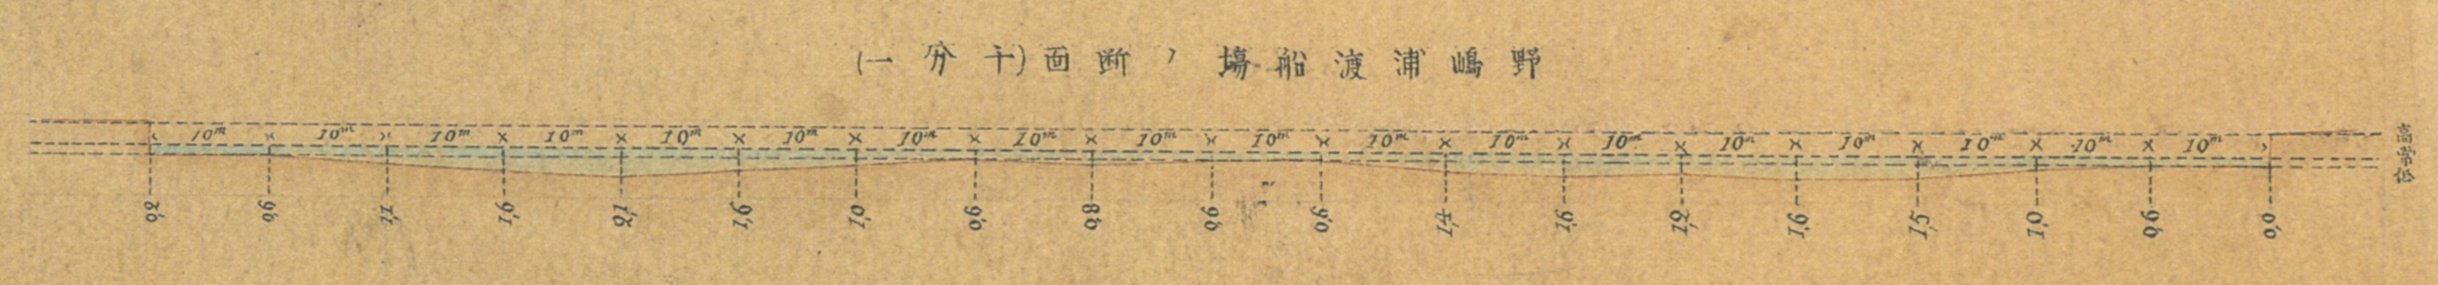 野嶋浦渡船塲ノ断面(千分一)
10m 10m 10m 10m 10m 10m 10m 10m 10m 10m 10m 10m 10m 10m 10m 10m 10m 10m
高常低
0,6 1,1 1,6 1,6 1,0 0,6 0,8 0,6 0,6 1,4 1,6 1,6 1,5 1,0 0,6 0,0